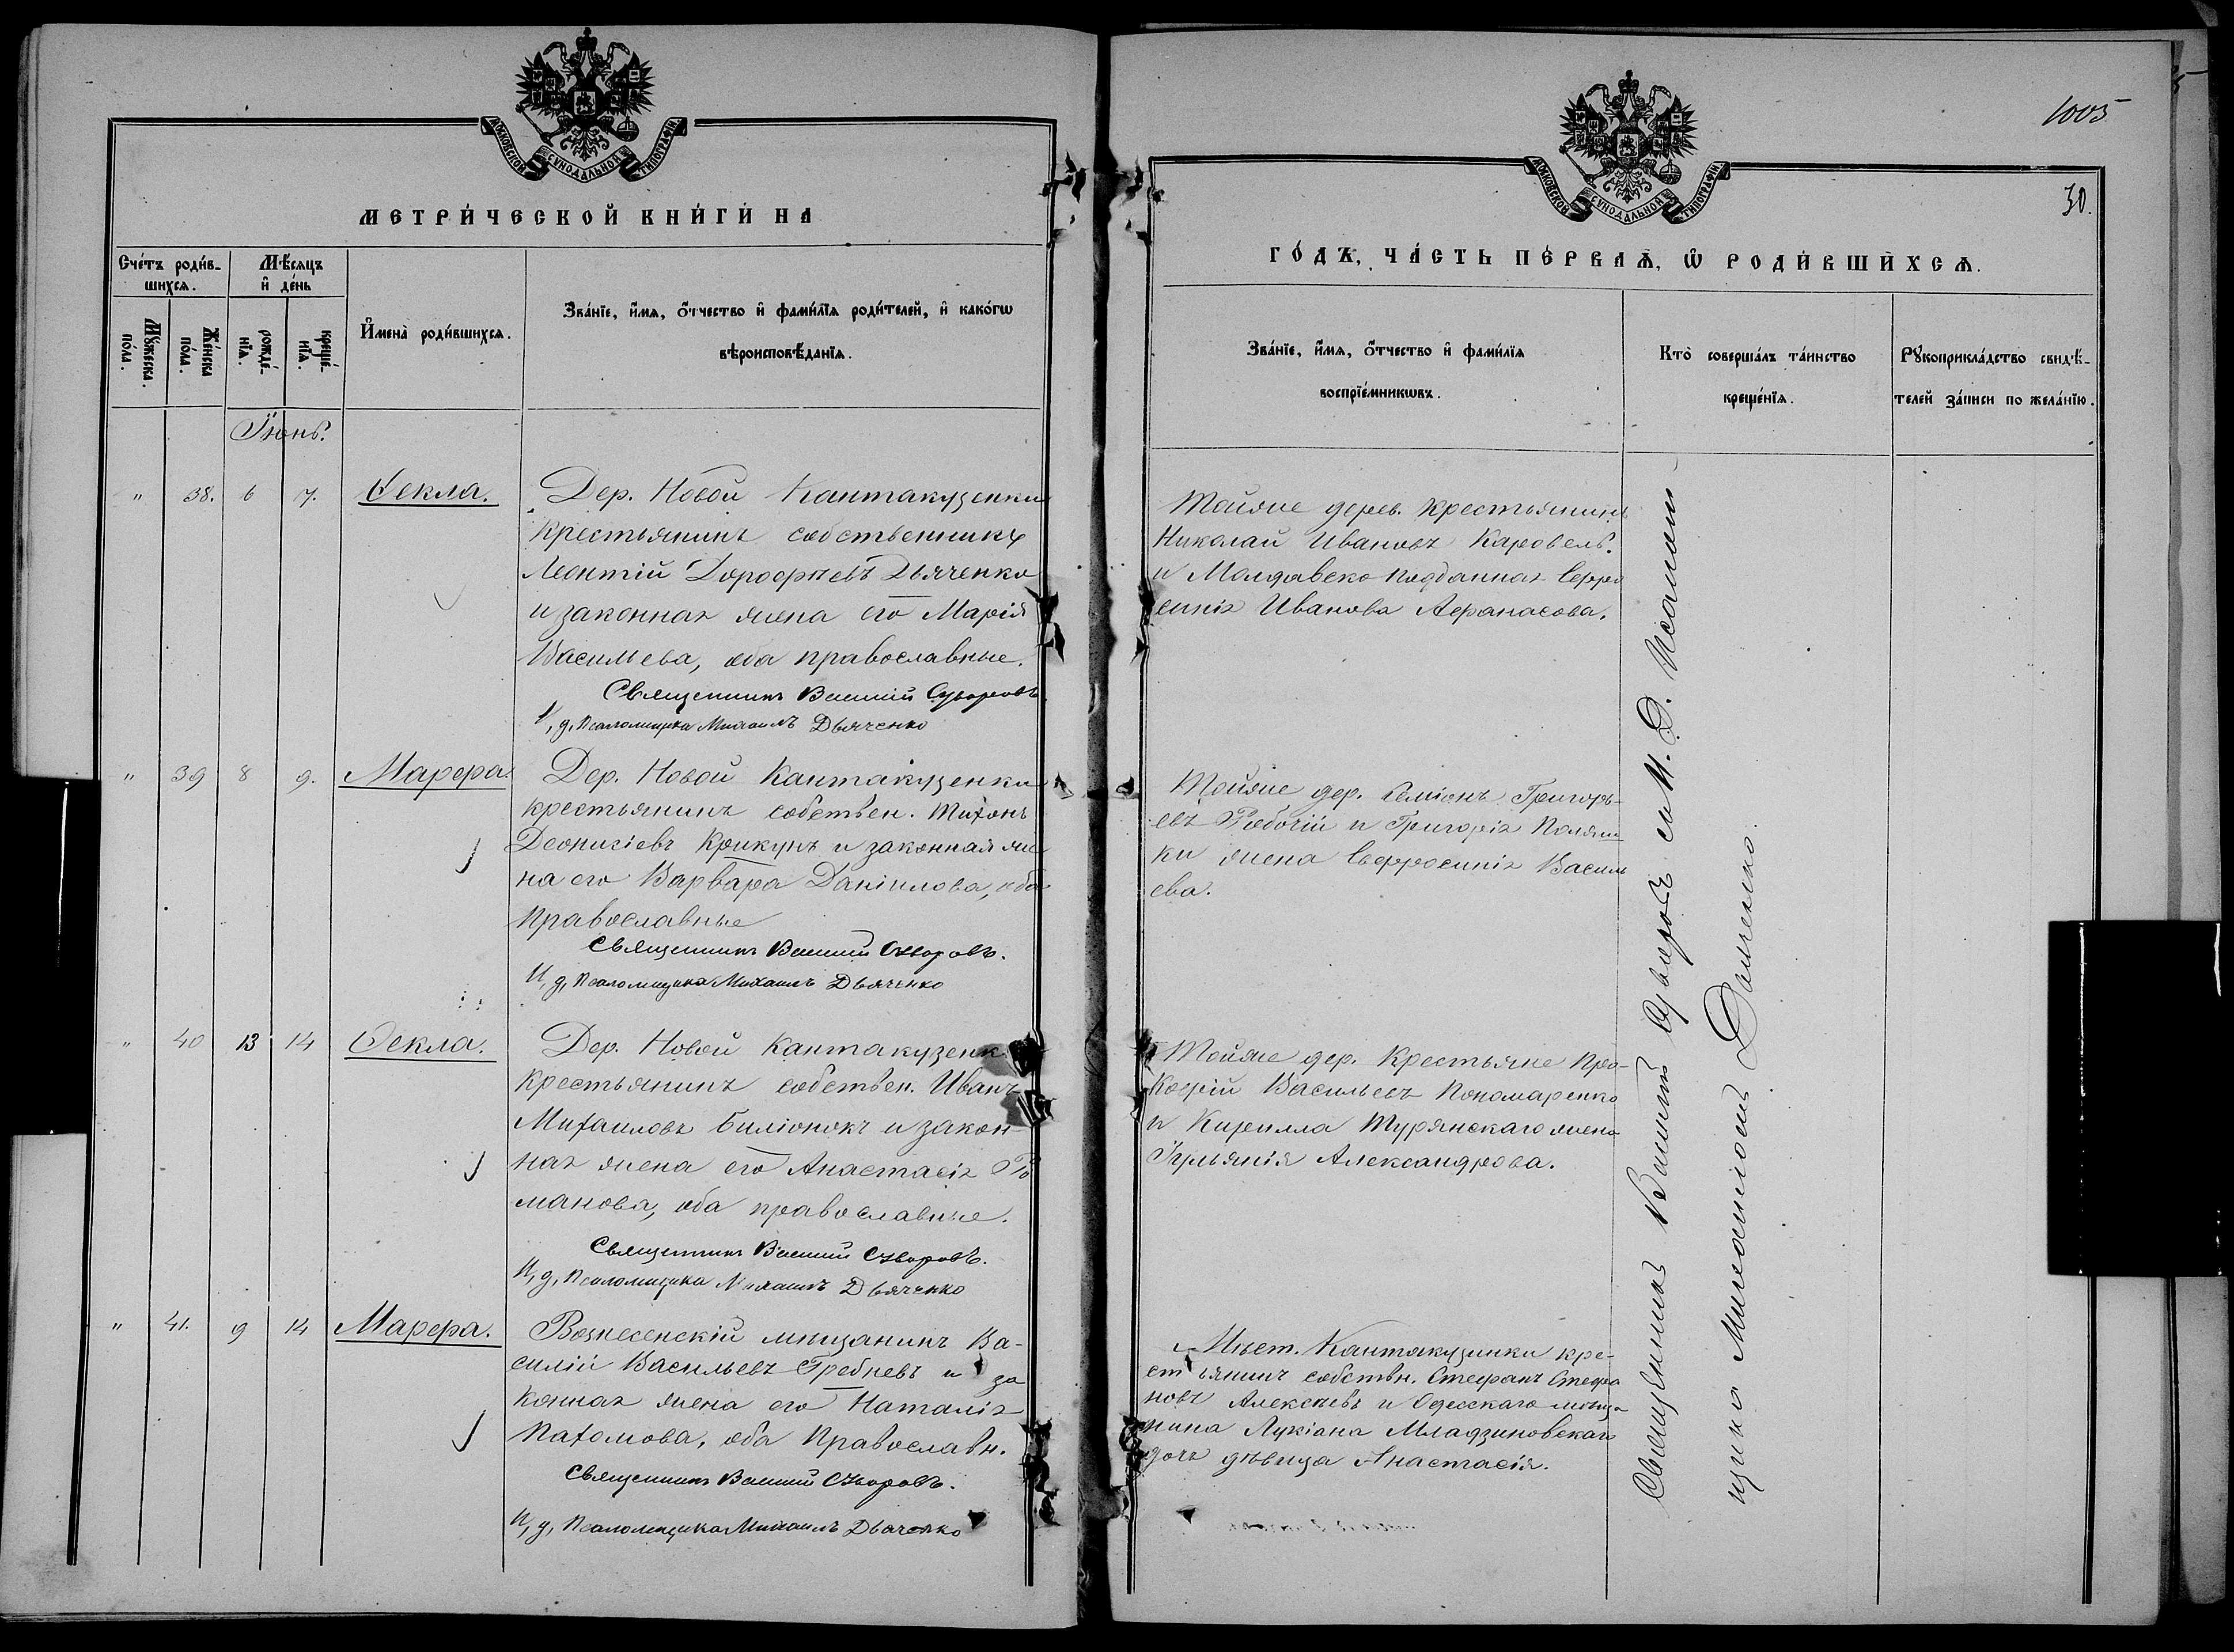 МОСКОВСКОЙ СѴНОДАЛЬНОЙ ТИПОГРАФІИ
МЕТРИ́ЧЕСКОЙ КНИ́ГИ НА
Сче́тъ роди́в-
шихсѧ.
Мѣ́сѧцъ
и҆ де́нь
Мꙋ́жеска по́ла.
Же́нска по́ла.
рожде́-нїѧ.
креще́-нїѧ.
И҆мена̀ роди́вшихсѧ.
Зва́нїе, и҆́мѧ, ѻ҆́тчество и҆ фами́лїѧ роди́телей, и҆ како́гѡ
вѣроисповѣ́данїѧ.
Іюнь.
" 38. 6 7. Ѳекла.
Дер. Новой Кантакузенки
крестьянинъ собственникъ
Леонтій Дороѳеевъ Дьяченко
и законная жена его Марія
Васильева, оба православные.
Священникъ Василій Суворовъ.
И, д, Псаломщика Михаилъ Дьяченко
" 39 8 9. Марѳа.
Дер. Новой Кантакузенки
крестьянинъ собствен. Тихонъ
Деонисіевъ Крикунъ и законная же
на его Варвара Даніилова, оба
православные
Священникъ Василій Суворовъ.
И, д, Псаломщика Михаилъ Дьяченко
" 40 13 14 Ѳекла.
Дер. Новой Кантакузенк
крестьянинъ собствен. Иванъ
Михаиловъ Биліонокъ и закон-
ная жена его Анастасія Ро
манова, оба православные.
Священникъ Василій Суворовъ.
И, д, Псаломщика Михаилъ Дьяченко
" 41. 9 14 Марѳа.
Вознесенскій мѣщанинъ Ва-
силій Васильевъ Гребневъ и за
конная жена его Наталія
Пахомова, оба православн.
Священникъ Василій Суворовъ.
И, д, Псаломщика Михаилъ Дьяченко
1005
МОСКОВСКОЙ СѴНОДАЛЬНОЙ ТИПОГРАФІИ
30.
ГО́ДЪ, ЧА́СТЬ ПЕ́РВАѦ, Ѡ҆ РОДИ́ВШИХСѦ.
Зва́нїе, и҆́мѧ, ѻ҆́тчество и҆ фами́лїѧ
воспрїе́мникѡвъ.
Кто̀ соверша́лъ та́инство
креще́нїѧ.
Рꙋкоприкла́дство свидѣ́-
телей за́писи по жела́нїю.
Тойже дерев. крестьянинъ
Николай Ивановъ Каровель.
и Молдавско подданная Евфро
синія Иванова Афанасова.
Тойже дер. Симіонъ Григорь-
евъ Рабочій и Григорія Поляш
ки жена Евфросинія Василь
ева.
Тойже дер. Крестьяне Про-
кофій Васильевъ Пономаренко
и Кирилла Турянскаго жена
Іульянія Александрова.
Мѣст. Кантакузинки кре-
стьянинъ собствн. Стефанъ Стефа
новъ Алексѣевъ и Одесскаго мѣща
нина Лукіана Младзиновскаго
дочь дѣвица Анастасія.
Священникъ Василій Суворовъ со И. Д. Псаломщика
Михаиломъ Дьяченко.